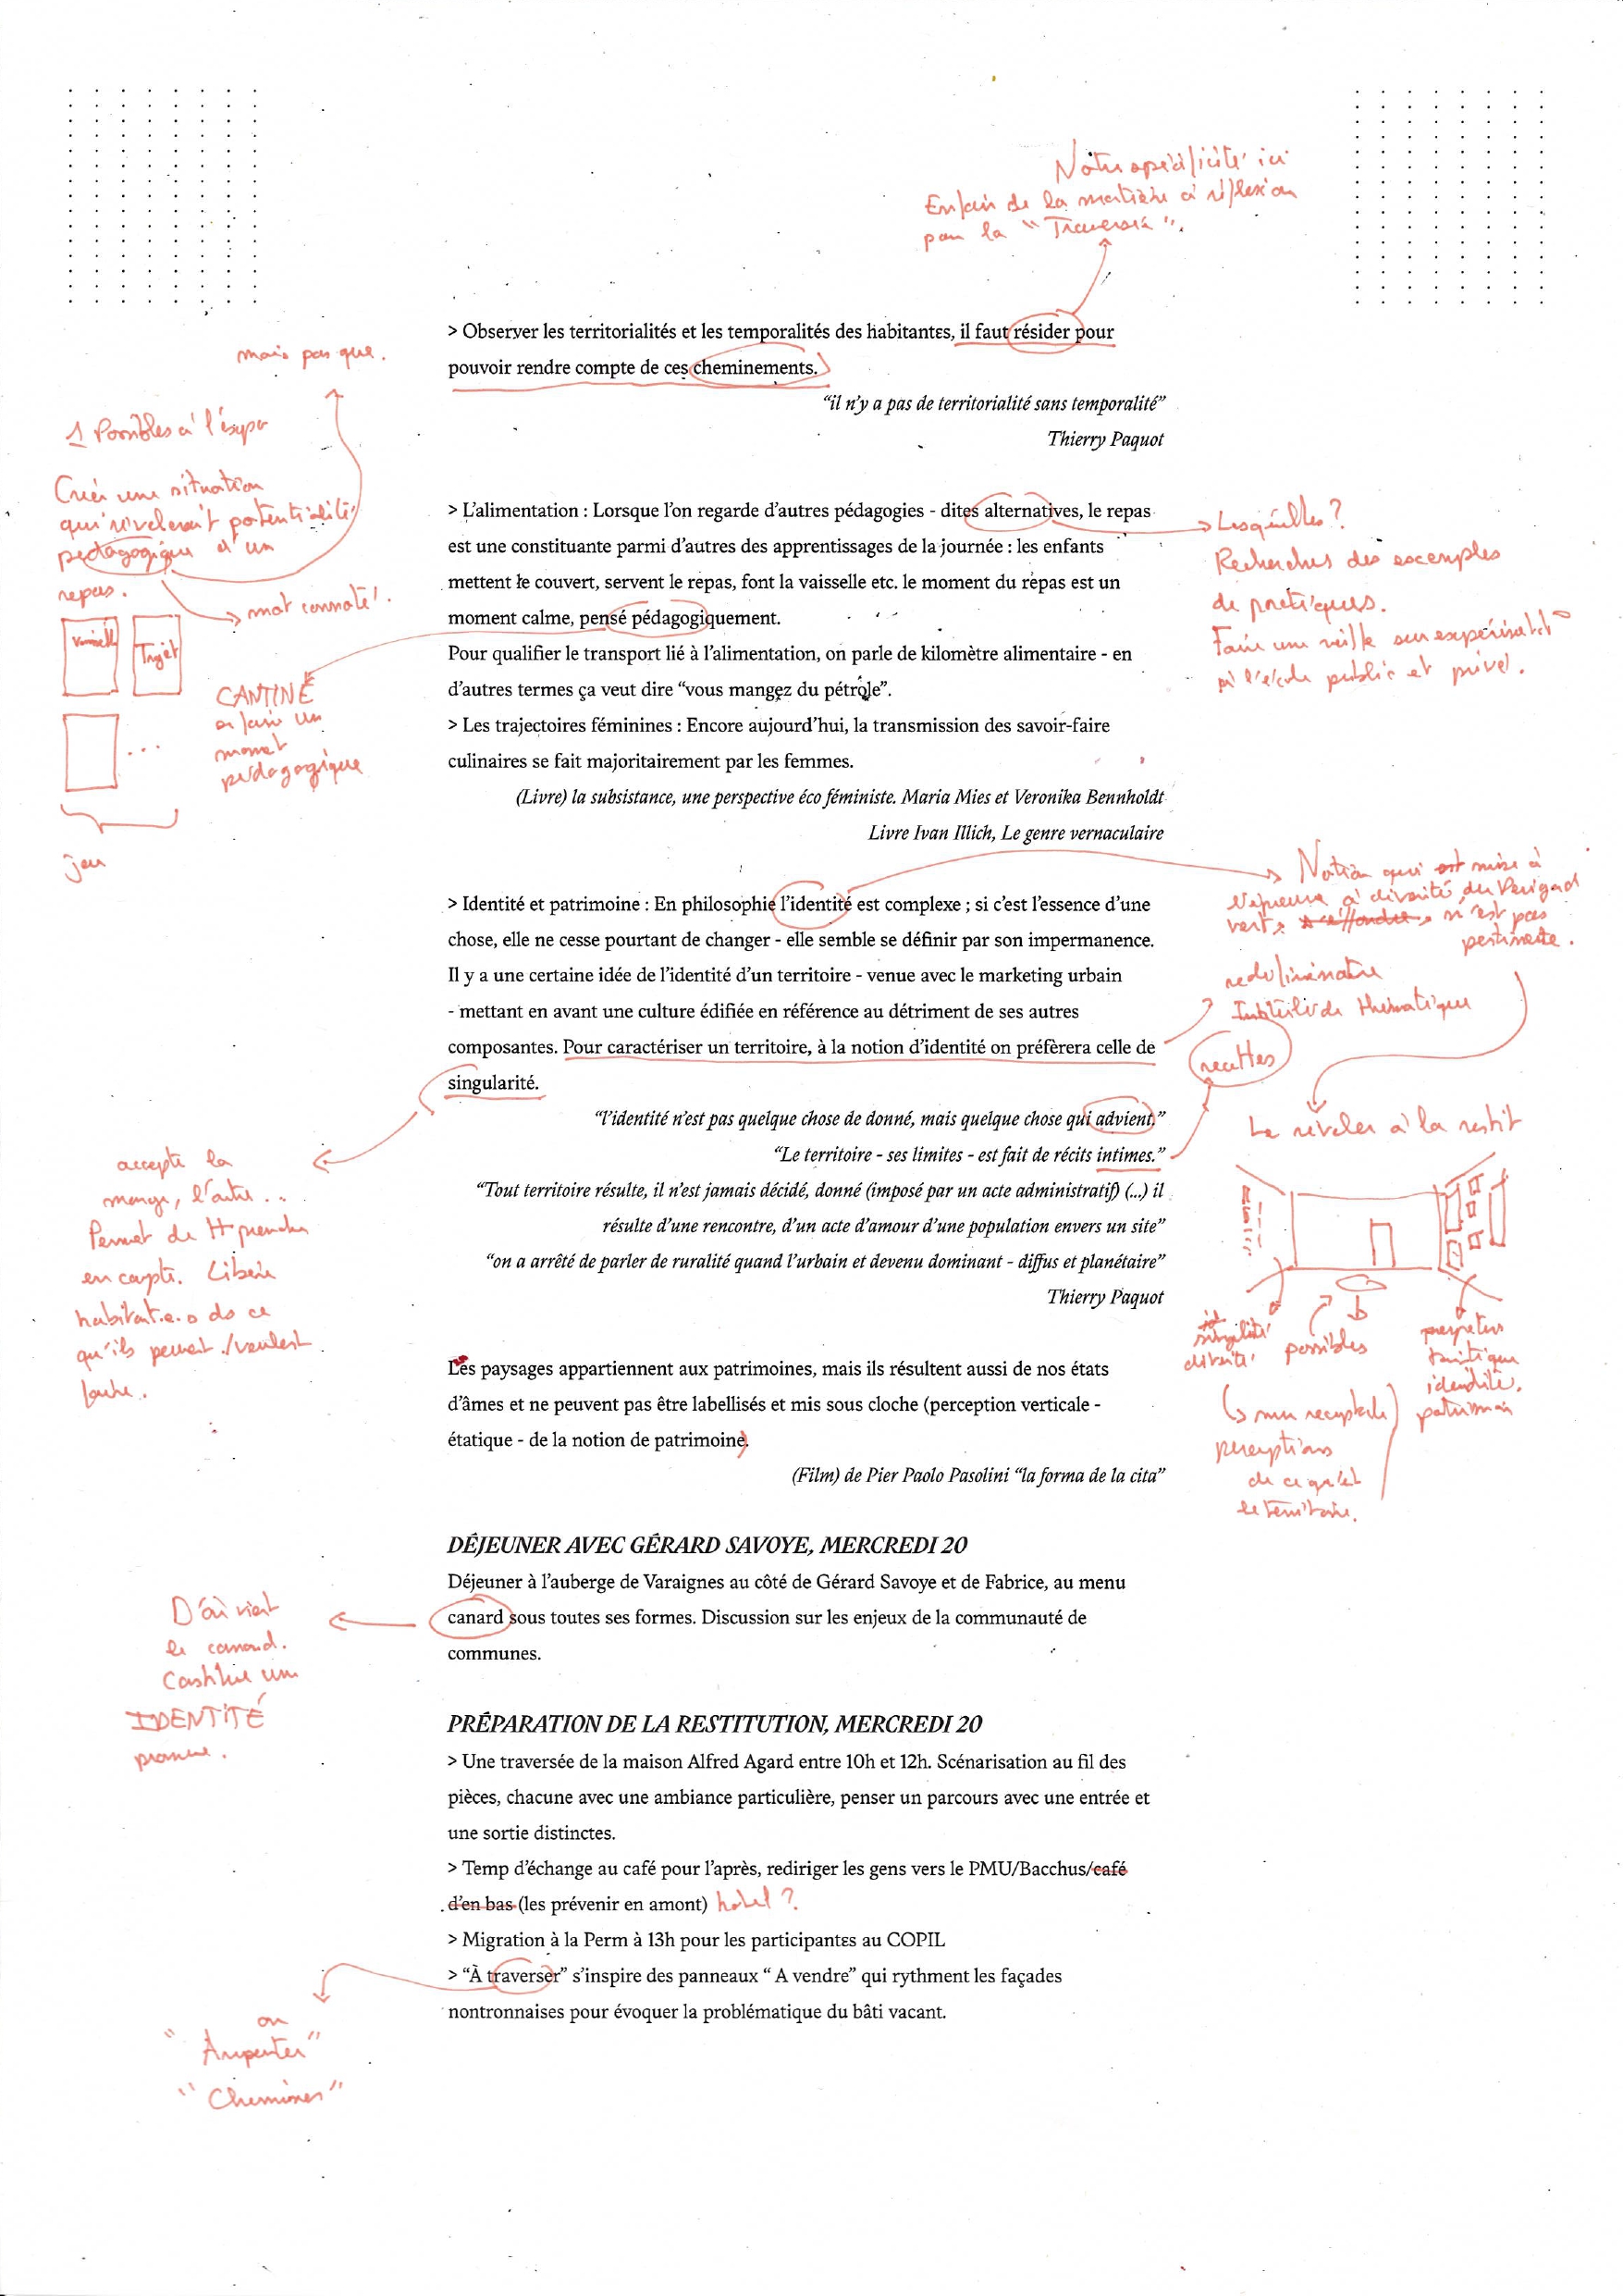 Notre spécificité ici
En faire de la matière à réflexion
pour la "Traversée".
> Observer les territorialités et les temporalités des habitantes, il faut résider pour
pouvoir rendre compte de ces cheminements.
"il n'y a pas de territorialité sans temporalité"
Thierry Paquot
mais pas que.
1 Possibles à l'expo
Créer une situation
qui révèlerait potentialité
pédagogique d'un
repas.
mot connoté!
Vaisselle
Trajet
...
jeu
CANTINE
en faire un
moment
pédagogique
> L'alimentation : Lorsque l'on regarde d'autres pédagogies - dites alternatives, le repas
est une constituante parmi d'autres des apprentissages de la journée : les enfants
mettent le couvert, servent le repas, font la vaisselle etc. le moment du repas est un
moment calme, pensé pédagogiquement.
Pour qualifier le transport lié à l'alimentation, on parle de kilomètre alimentaire - en
d'autres termes ça veut dire "vous mangez du pétrole".
> Les trajectoires féminines : Encore aujourd'hui, la transmission des savoir-faire
culinaires se fait majoritairement par les femmes.
(Livre) la subsistance, une perspective éco féministe. Maria Mies et Veronika Bennholdt
Livre Ivan Illich, Le genre vernaculaire
Lesquelles ?
Rechercher des exemples
de pratiques.
Faire une veille sur expérimentat°
à l'école public et privé.
> Identité et patrimoine : En philosophie l'identité est complexe ; si c'est l'essence d'une
chose, elle ne cesse pourtant de changer - elle semble se définir par son impermanence.
Il y a une certaine idée de l'identité d'un territoire - venue avec le marketing urbain
- mettant en avant une culture édifiée en référence au détriment de ses autres
composantes. Pour caractériser un territoire, à la notion d'identité on préfèrera celle de
singularité.
"l'identité n'est pas quelque chose de donné, mais quelque chose qui advient."
"Le territoire - ses limites - est fait de récits intimes."
"Tout territoire résulte, il n'est jamais décidé, donné (imposé par un acte administratif) (...) il
résulte d'une rencontre, d'un acte d'amour d'une population envers un site"
"on a arrêté de parler de ruralité quand l'urbain et devenu dominant - diffus et planétaire"
Thierry Paquot
Notion qui est mise à
l'épreuve à diversité du Périgord
vert, n'est pas
pertinente.
thématique
recettes
Le révéler à la restit
singularité
diversité
possibles
identité.
perceptions
de ce qu'est
le territoire.
accepte la
marge, l'autre..
Permet de tt prendre
en compte. Libère
habitant.e.s de ce
qu'ils peuvent /veulent
faire.
Les paysages appartiennent aux patrimoines, mais ils résultent aussi de nos états
d'âmes et ne peuvent pas être labellisés et mis sous cloche (perception verticale -
étatique - de la notion de patrimoine)
(Film) de Pier Paolo Pasolini "la forma de la cita"
DÉJEUNER AVEC GÉRARD SAVOYE, MERCREDI 20
Déjeuner à l'auberge de Varaignes au côté de Gérard Savoye et de Fabrice, au menu
canard sous toutes ses formes. Discussion sur les enjeux de la communauté de
communes.
D'où vient
le canard.
Constitue une
IDENTITÉ
PRÉPARATION DE LA RESTITUTION, MERCREDI 20
> Une traversée de la maison Alfred Agard entre 10h et 12h. Scénarisation au fil des
pièces, chacune avec une ambiance particulière, penser un parcours avec une entrée et
une sortie distinctes.
> Temp d'échange au café pour l'après, rediriger les gens vers le PMU/Bacchus/café
d'en bas (les prévenir en amont) hotel ?
> Migration à la Perm à 13h pour les participantes au COPIL
> "À traverser" s'inspire des panneaux " A vendre" qui rythment les façades
nontronnaises pour évoquer la problématique du bâti vacant.
ou
"Arpenter"
"Cheminer"